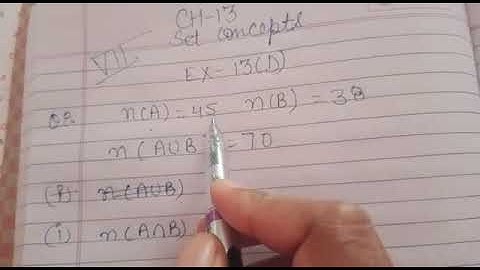 CH-13
Set concepts
VII
EX-13(D)
Q2. n(A) = 45 n(B) = 38
n(A∪B) = 70
(i) n(A∪B)
(i) n(A∩B)